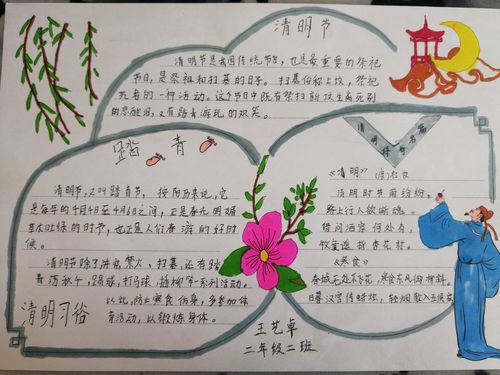 清明节
清明节是我国传统节日，也是最重要的祭祀
节日，是祭祖和扫墓的日子。扫墓俗称上坟，祭祀
死者的一种活动。这个节日中既有祭扫新坟生离死别
的悲酸泪，又有踏青游玩的欢笑。
踏青
清明节，又叫踏青节，按阳历来说，它
是每年的4月4日至4月6日之间，正是春光明媚
草木吐绿的时节，也正是人们春游的好时
候。
清明节除了讲究禁火，扫墓，还有踏
青荡秋千，踢球，打马球，插柳等一系列活动。
以此，防止寒食伤身，多参加体
育活动，以锻炼身体。
清明习俗
清明诗句名篇
《清明》 唐)杜牧
清明时节雨纷纷，
路上行人欲断魂。
借问酒家何处有，
牧童遥指杏花村。
《寒食》
春城无处不飞花，寒食东风御柳斜。
日暮汉宫传蜡烛，轻烟散入五侯家
王艺卓
二年级二班